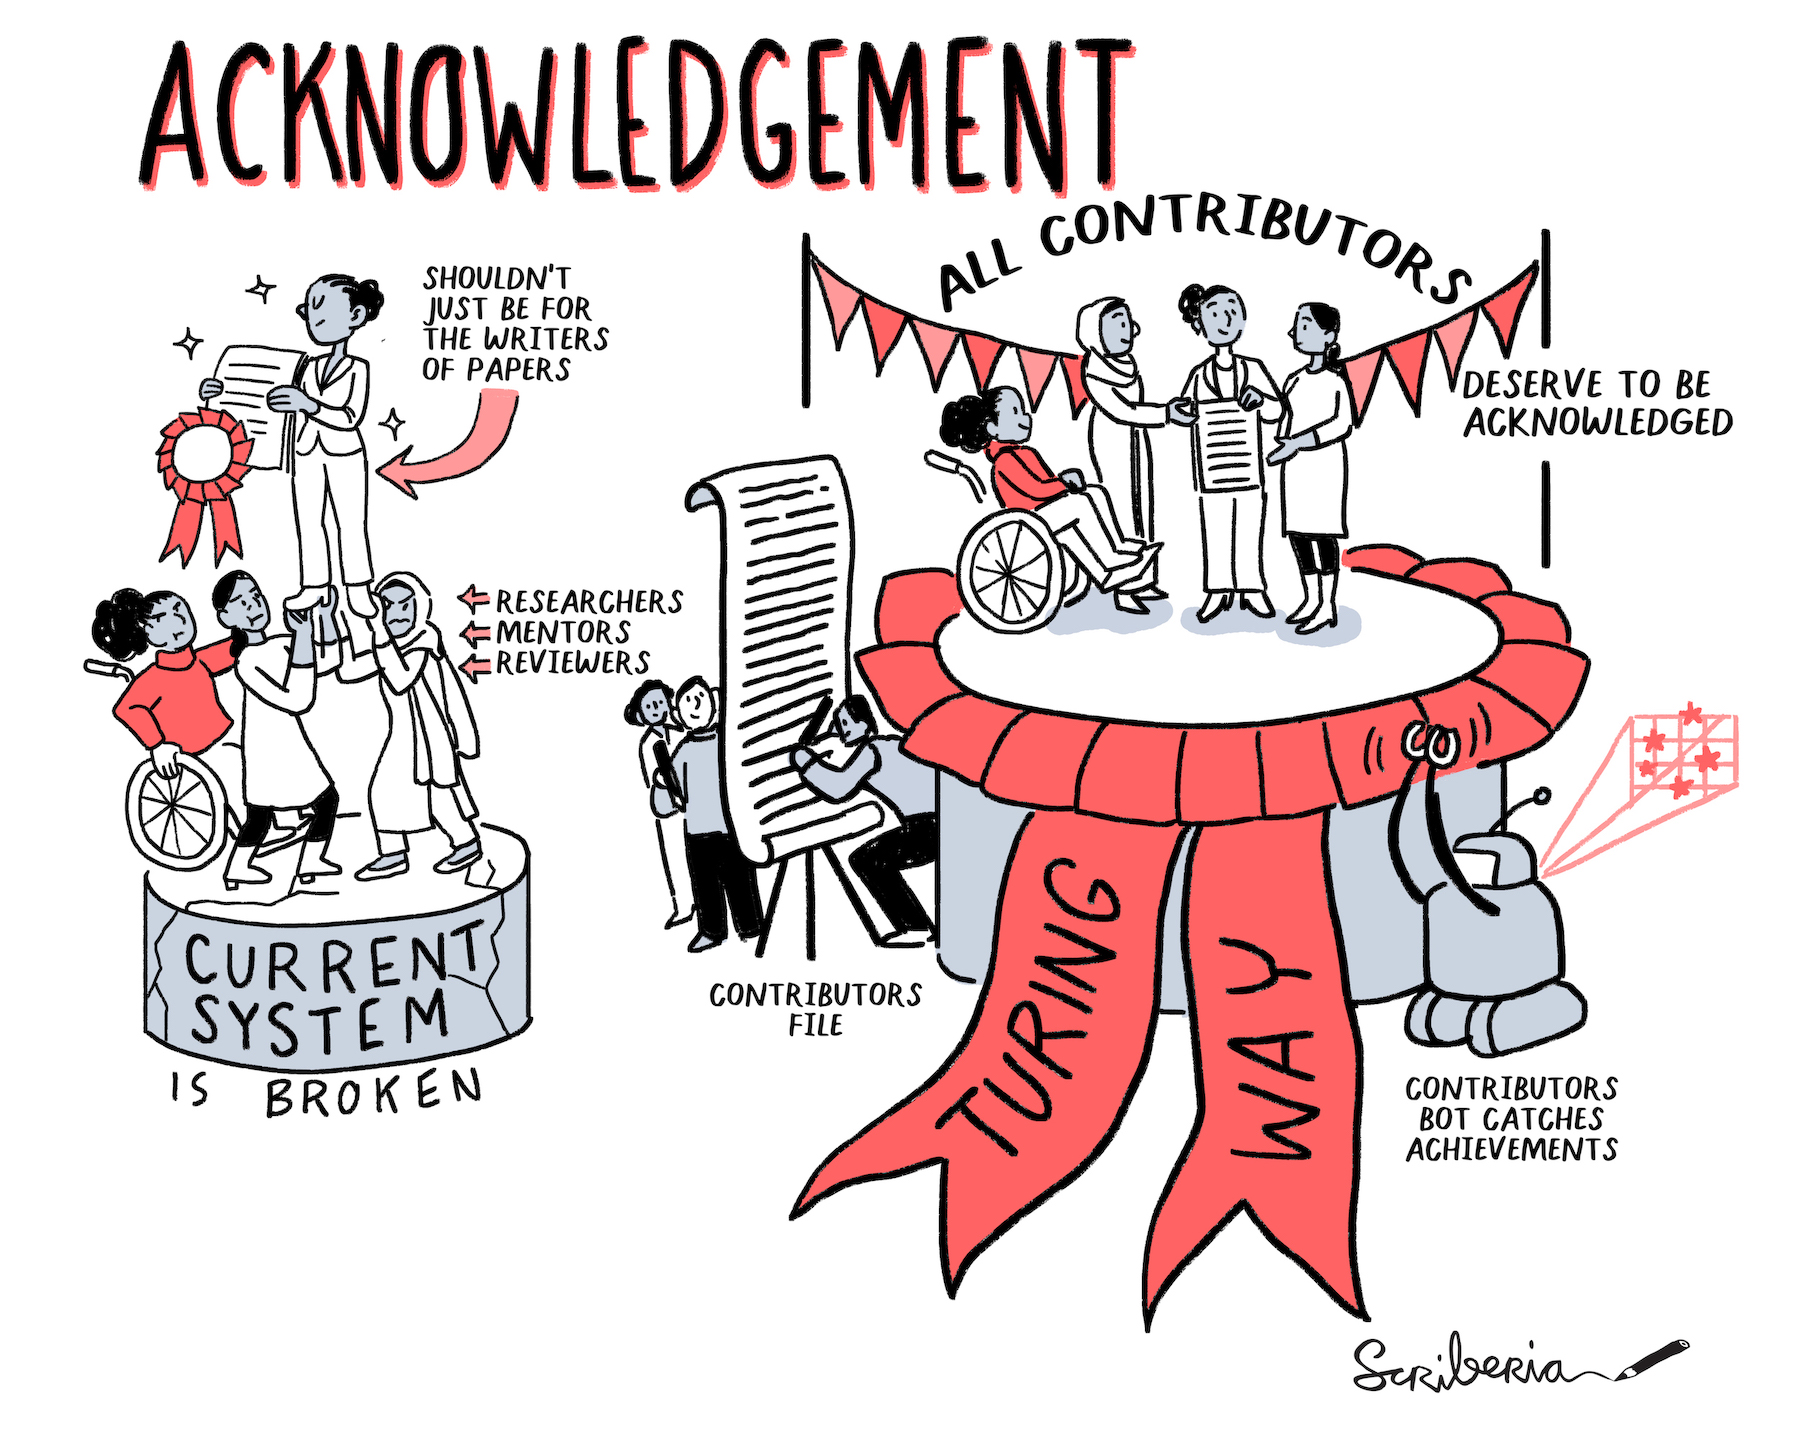 ACKNOWLEDGEMENT
SHOULDN'T
JUST BE FOR
THE WRITERS
OF PAPERS
RESEARCHERS
MENTORS
REVIEWERS
CURRENT
SYSTEM
IS BROKEN
ALL CONTRIBUTORS
DESERVE TO BE
ACKNOWLEDGED
CONTRIBUTORS
FILE
TURING
WAY
CONTRIBUTORS
BOT CATCHES
ACHIEVEMENTS
Scriberia